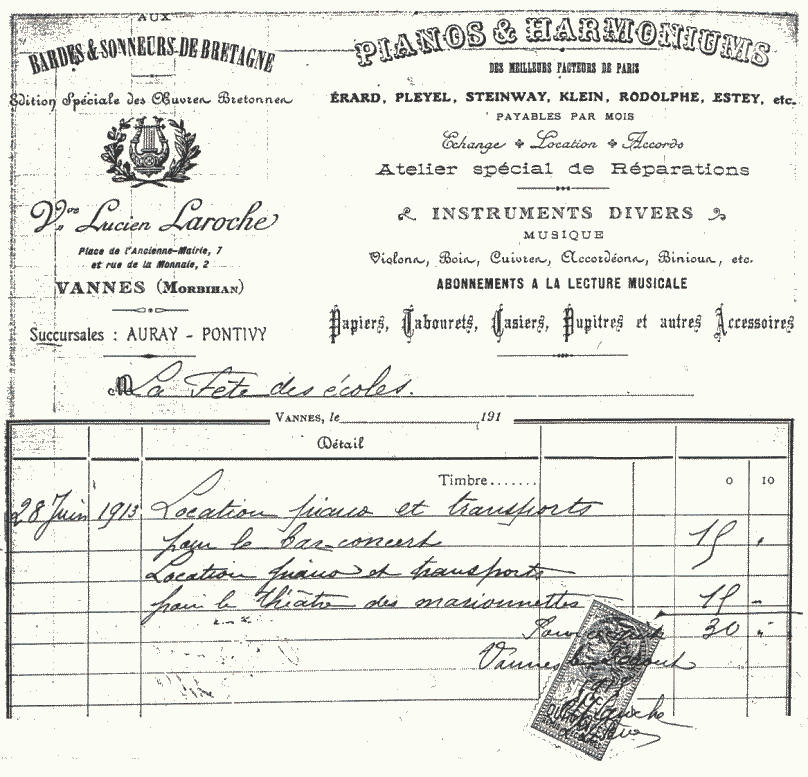 AUX
BARDES & SONNEURS DE BRETAGNE
Edition Spéciale des Œuvres Bretonnes
Vve Lucien Laroche
Place de l'Ancienne-Mairie, 7
et rue de la Monnaie, 2
VANNES (MORBIHAN)
Succursales : AURAY - PONTIVY
PIANOS & HARMONIUMS
DES MEILLEURS FACTEURS DE PARIS
ÉRARD, PLEYEL, STEINWAY, KLEIN, RODOLPHE, ESTEY, etc.
PAYABLES PAR MOIS
Echange ❖ Location ❖ Accords
Atelier spécial de Réparations
INSTRUMENTS DIVERS
MUSIQUE
Violons, Bois, Cuivres, Accordéons, Binious, etc.
ABONNEMENTS A LA LECTURE MUSICALE
Papiers, Tabourets, Casiers, Pupitres et autres Accessoires
M La Fête des écoles.
VANNES, le 191
Détail
Timbre....... 0 10
28 Juin 1913 Location piano et transports
pour le bar-concert 15 "
Location piano et transports
pour le théâtre des marionnettes 15 "
Pour 30 "
Vannes le
Laroche